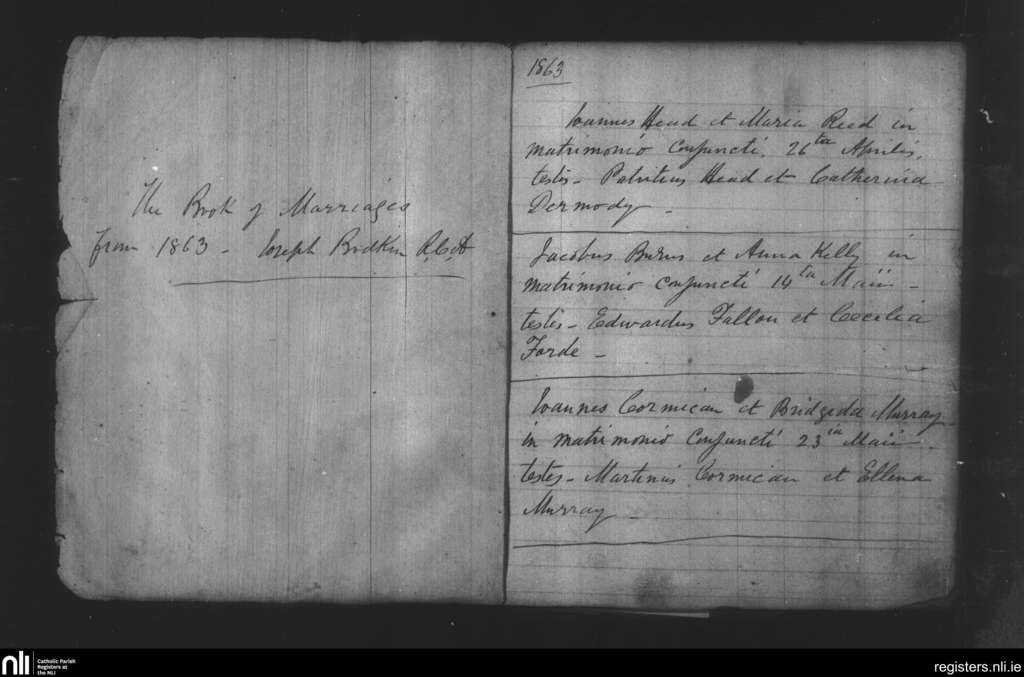 The Book of Marriages
from 1863 - Joseph Bodkin R.C.A
1863
Ioannes Head et Maria Reed in
matrimonio conjuncti. 26ta Aprilis,
testis - Patritius Head et Catherina
Dermody -
Jacobus Burns et Anna Kelly in
matrimonio conjuncti 14ta Maii -
testis - Edwardus Fallon et Cecelia
Forde -
Ioannes Cormican et Bridgeda Murray
in matrimonio conjuncti 23ia Maii -
testes - Martinus Cormican et Ellena
Murray -
nli
Catholic Parish
Registers at
the NLI
registers.nli.ie